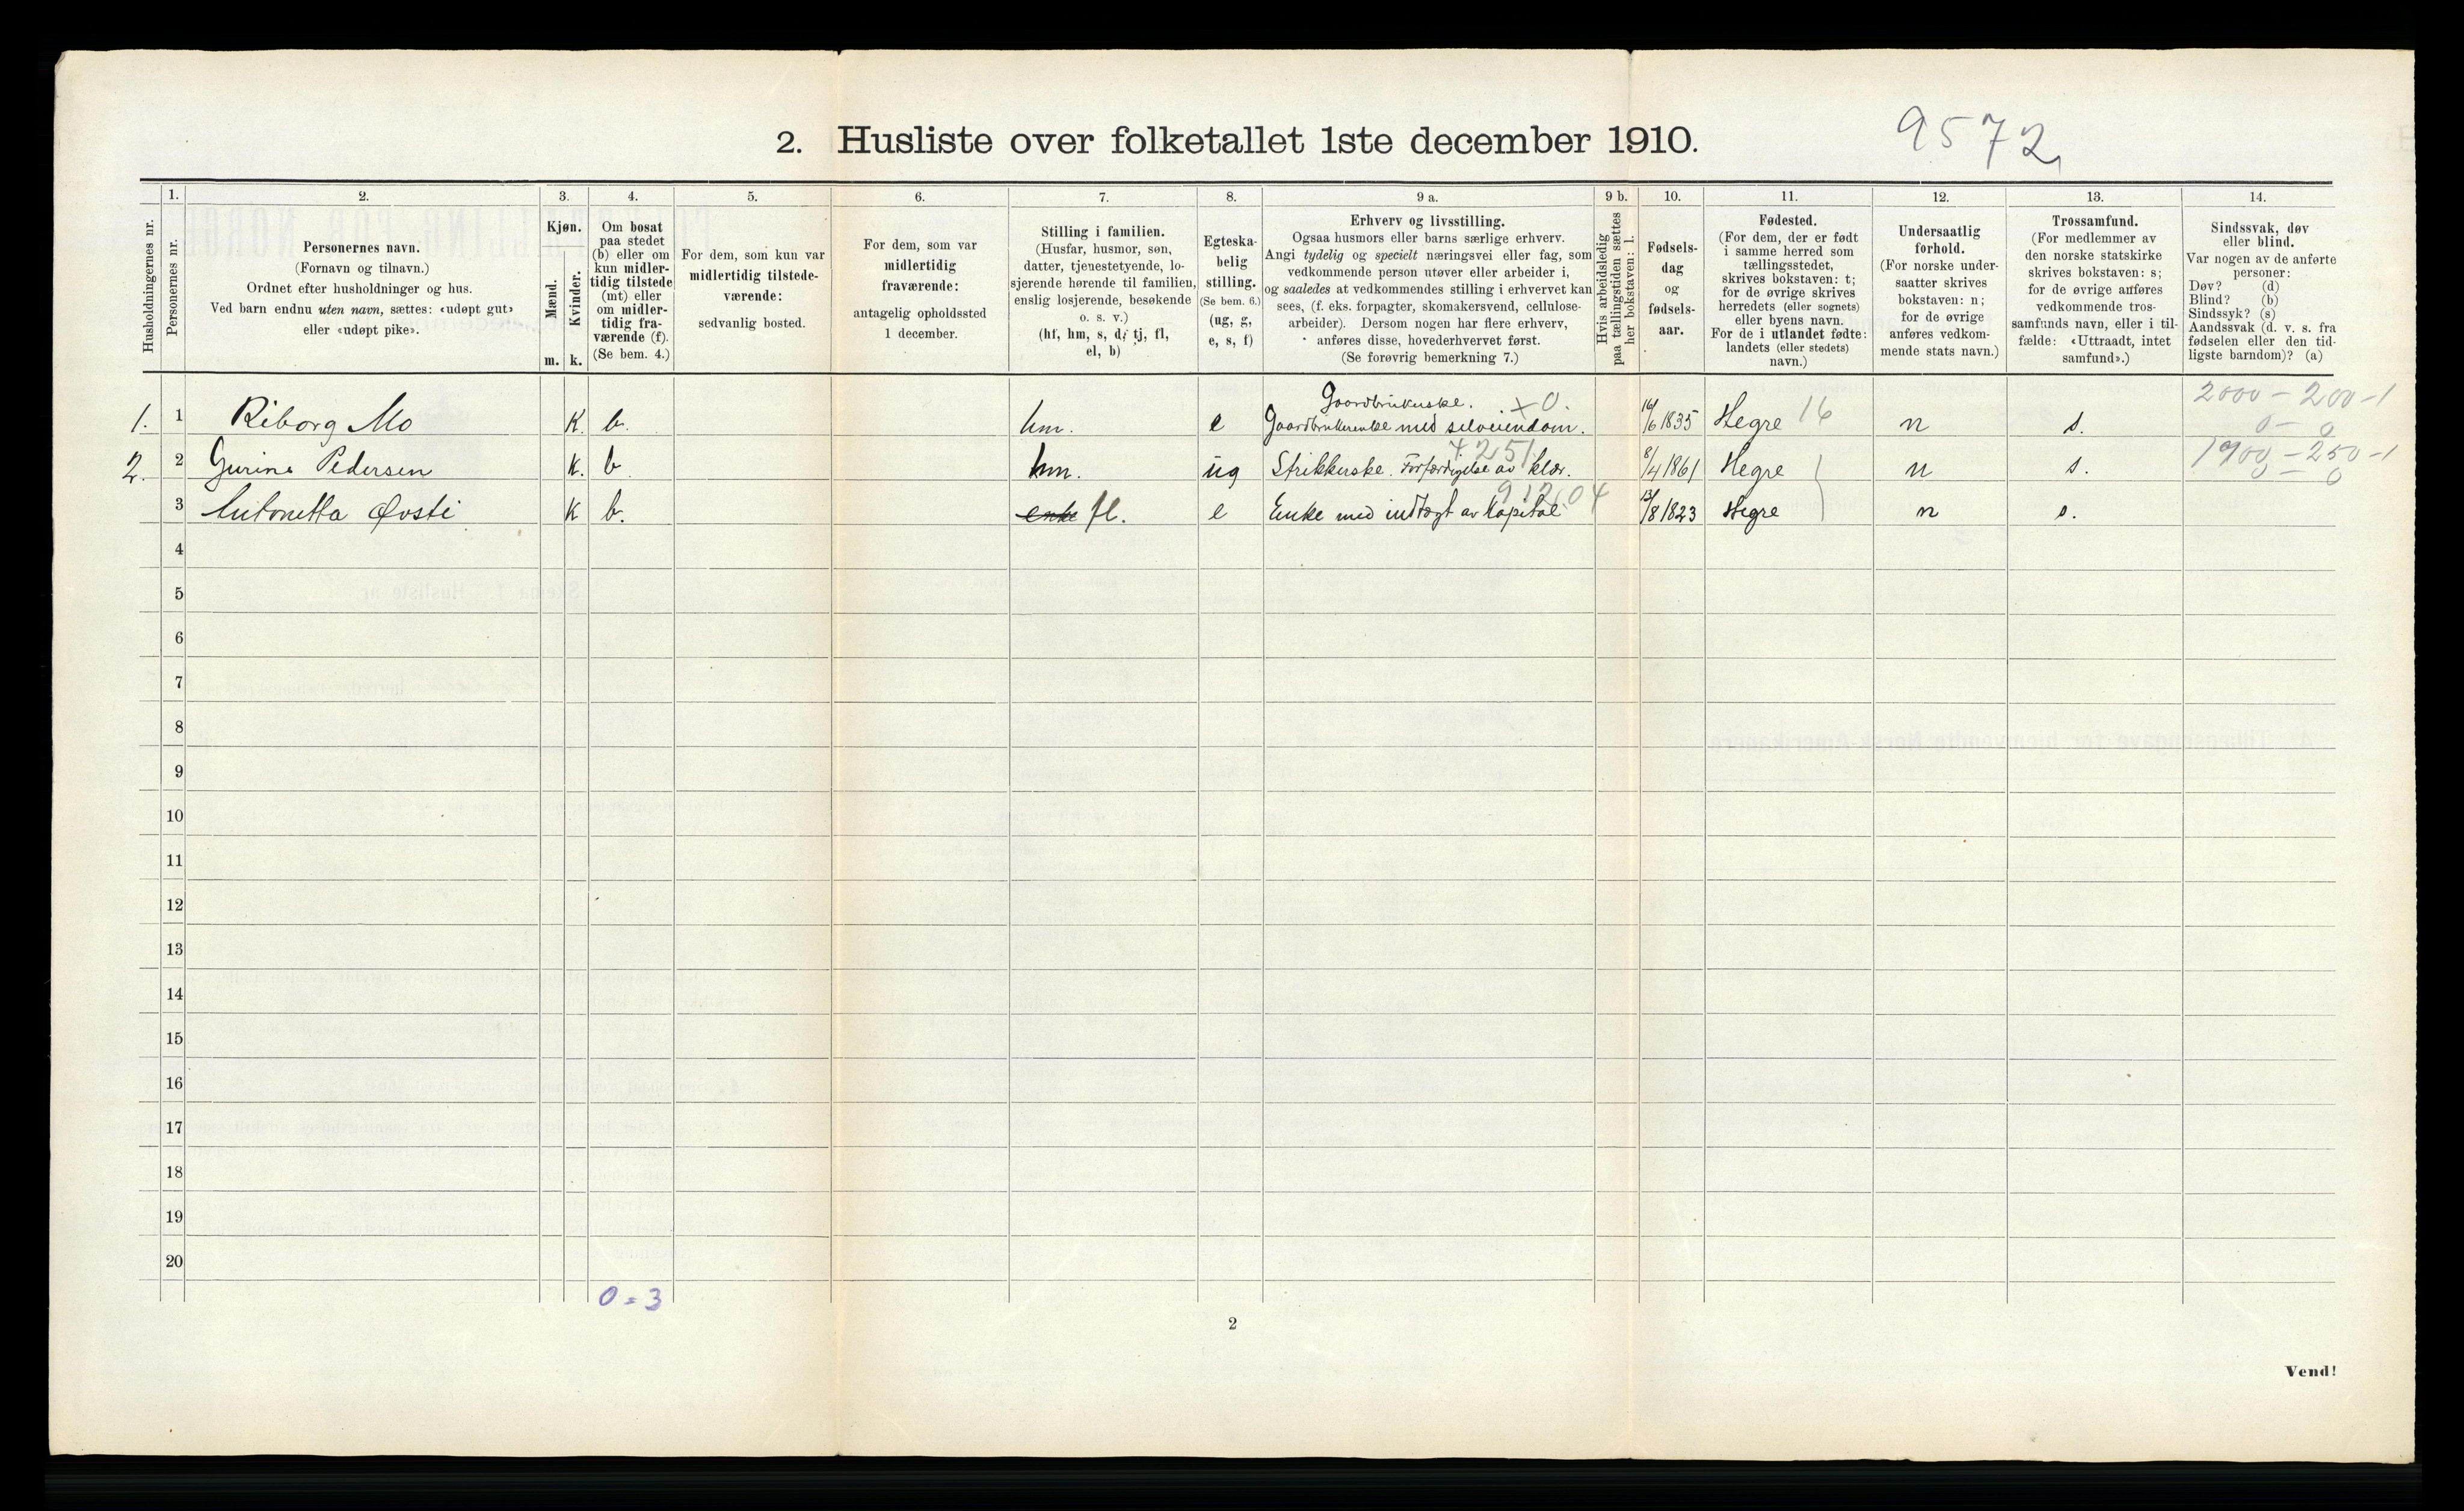 2. Husliste over folketallet 1ste december 1910.
9572
1. 2. 3. 4. 5. 6. 7. 8. 9 a. 9 b. 10. 11. 12. 13. 14.
Husholdningernes nr.
Personernes nr.
Personernes navn.
(Fornavn og tilnavn.)
Ordnet efter husholdninger og hus.
Ved barn endnu uten navn, sættes: «udøpt gut»
eller «udøpt pike».
Kjøn.
Mænd.
Kvinder.
m. k.
Om bosat
paa stedet
(b) eller om
kun midler-
tidig tilstede
(mt) eller
om midler-
tidig fra-
værende (f).
(Se bem. 4.)
For dem, som kun var
midlertidig tilstede-
værende:
sedvanlig bosted.
For dem, som var
midlertidig
fraværende:
antagelig opholdssted
1 december.
Stilling i familien.
(Husfar, husmor, søn,
datter, tjenestetyende, lo-
sjerende hørende til familien,
enslig losjerende, besøkende
o. s. v.)
(hf, hm, s, d, tj, fl,
el, b)
Egteska-
belig
stilling.
(Se bem. 6.)
(ug, g,
e, s, f)
Erhverv og livsstilling.
Ogsaa husmors eller barns særlige erhverv.
Angi tydelig og specielt næringsvei eller fag, som
vedkommende person utøver eller arbeider i,
og saaledes at vedkommendes stilling i erhvervet kan
sees, (f. eks. forpagter, skomakersvend, cellulose-
arbeider). Dersom nogen har flere erhverv,
anføres disse, hovederhvervet først.
(Se forøvrig bemerkning 7.)
Hvis arbeidsledig
paa tællingstiden sættes
her bokstaven: l.
Fødsels-
dag
og
fødsels-
aar.
Fødested.
(For dem, der er født
i samme herred som
tællingsstedet,
skrives bokstaven: t;
for de øvrige skrives
herredets (eller sognets)
eller byens navn.
For de i utlandet fødte:
landets (eller stedets)
navn.)
Undersaatlig
forhold.
(For norske under-
saatter skrives
bokstaven: n;
for de øvrige
anføres vedkom-
mende stats navn.)
Trossamfund.
(For medlemmer av
den norske statskirke
skrives bokstaven: s;
for de øvrige anføres
vedkommende tros-
samfunds navn, eller i til-
fælde: «Uttraadt, intet
samfund».)
Sindssvak, døv
eller blind.
Var nogen av de anførte
personer:
Døv? (d)
Blind? (b)
Sindssyk? (s)
Aandssvak (d. v. s. fra
fødselen eller den tid-
ligste barndom)? (a)
Gaardbrukerske. x0. 2000 - 200 - 1
1. 1 Riborg Mo K. b. hm. e Gaardbrukerenke med selveiendom. 16/6 1835 Hegre 16 n s. 0 - 0
4251 1900 - 250 - 1
2. 2 Gurine Pedersen K. b hm. ug Strikkerske. Forfærdigelse av klær. 8/4 1861 Hegre n s. 0 - 0
912.04
3 Antonetta Øvsti K b. enke fl. e Enke med indtægt av Kapital 13/8 1823 Hegre n s.
4
5
6
7
8
9
10
11
12
13
14
15
16
17
18
19
20
0 = 3
2
Vend!